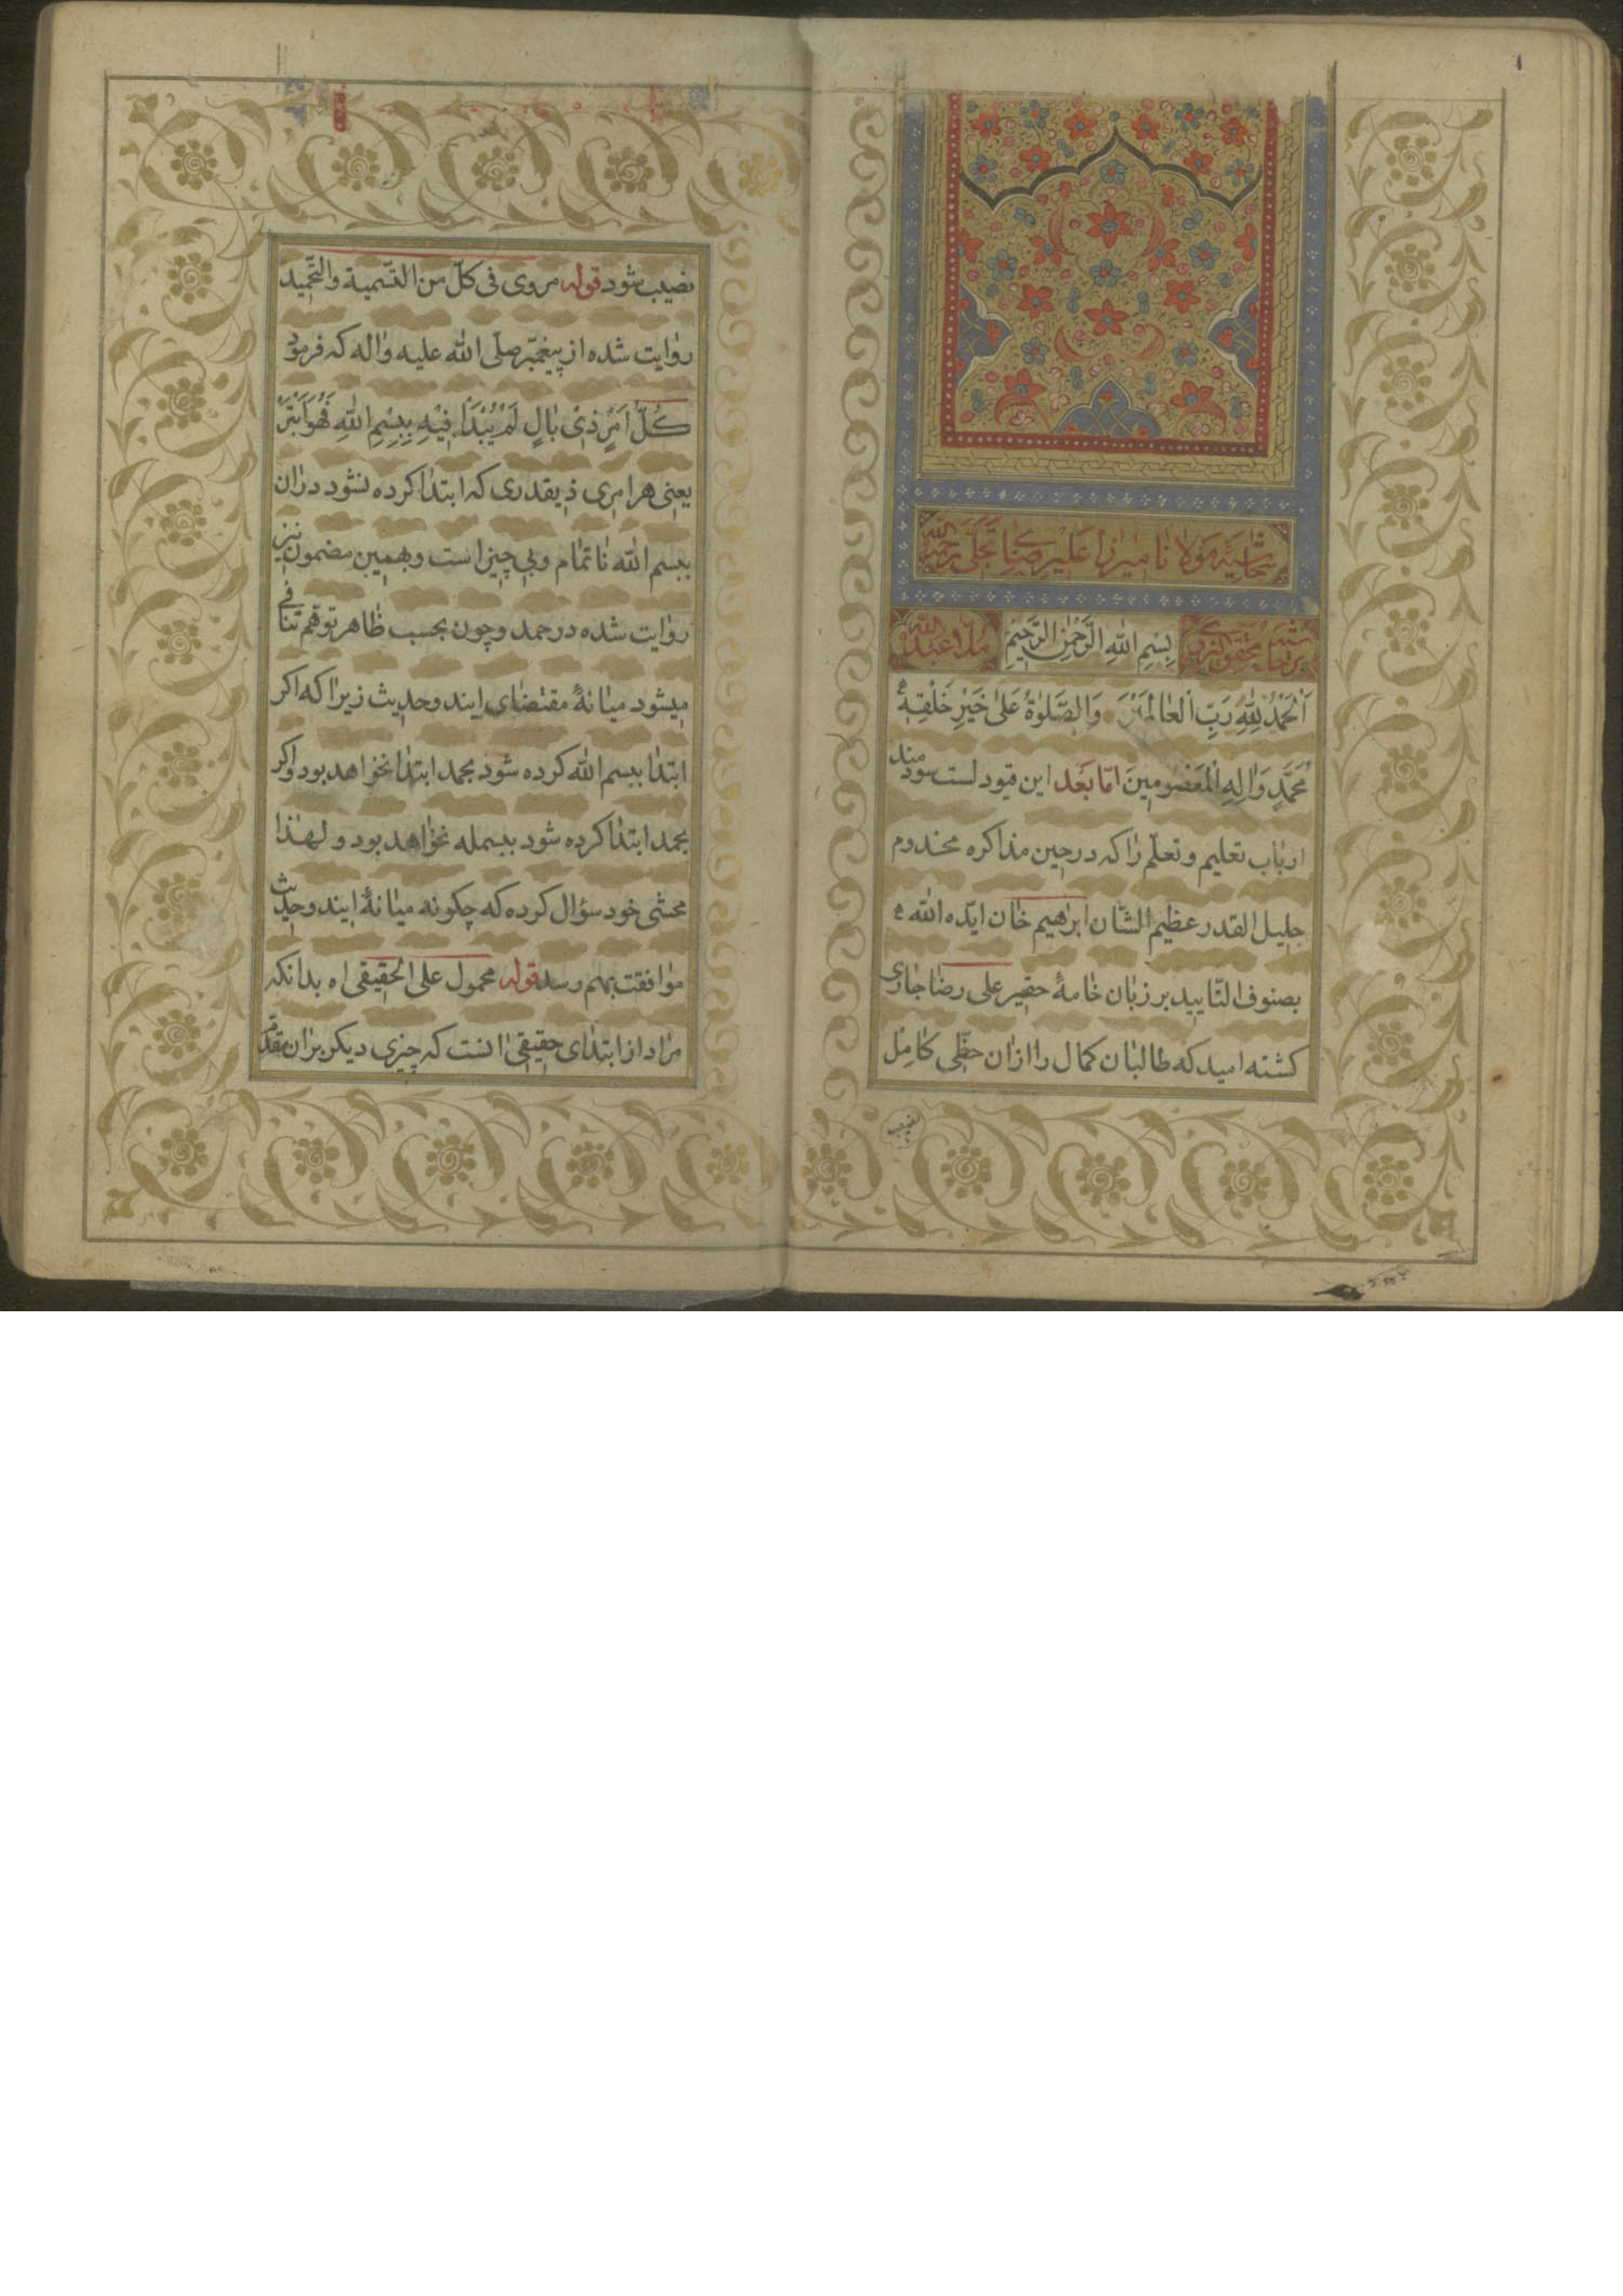 ۱
حاشیه مولانا میرزا علیرضا تجلی رحمه الله
بسم الله الرحمن الرحیم
ملا عبد الله
اَلْحَمْدُ لِلّهِ رَبِّ الْعالَمینَ وَالصَّلوٰةُ عَلیٰ خَیْرِ خَلْقِهِ
مُحَمَّدٍ وَاٰلِهِ الْمَعْصُومینَ امّا بَعْد این قیود لست سودمند
ارباب تعلیم و تعلّم را که در حین مذاکره مخدوم
جلیل القدر عظیم الشّان ابرٰهیم خان ایّده الله
بصنوف التّایید بر زبان خامهٔ حقیر علی رضا جاری
کشته امید که طالبان کمال را ازان حظّی کامِل
نصیب
نصیب شود قوله مروی فی کلّ من التّسمیة والتّحمید
روایت شده از پیغمبر صلّی الله علیه واله که فرمود
كُلُّ اَمْرٍ ذی بٰالٍ لَمْ یُبْدَأْ فیهِ بِبِسْمِ اللهِ فَهُوَ اَبْتَرُ
یعنی هر امری ذیقدری که ابتدا کرده نشود دران
ببسم الله ناتمام وبی چیز است وبهمین مضمون نیز
روایت شده در حمد و چون بحسب ظاهر توهّم تنافی
میشود میانهٔ مقتضای ایندو حدیث زیرا که اکر
ابتدا ببسم الله کرده شود بحمد ابتدا نخواهد بود واکر
بحمد ابتدا کرده شود ببسمله نخواهد بود و لهذا
محشی خود سؤال کرده که چکونه میانهٔ ایندو حدیث
موافقت بهم رسد قوله محمول علی الحقیقی اه بدانکه
مراد از ابتدای حقیقی انست که چیزی دیکر بران مقدّم